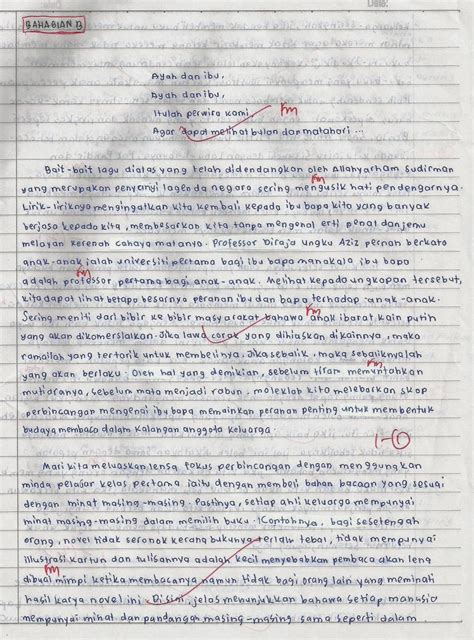 BAHAGIAN B
Ayah dan ibu,
Ayah dan ibu,
Itulah perwira kami,
Agar dapat melihat bulan dan matahari ...
Bait-bait lagu diatas yang telah didendangkan oleh Allahyarham Sudirman
yang merupakan penyanyi lagenda negara sering mengusik hati pendengarnya.
Lirik-liriknya mengingatkan kita kembali kepada ibu bapa kita yang banyak
berjasa kepada kita, membesarkan kita tanpa mengenal erti penat dan jemu
melayan kerenah cahaya matanya. Professor Diraja Ungku Aziz pernah berkata
anak-anak ialah universiti pertama bagi ibu bapa manakala ibu bapa
adalah professor pertama bagi anak-anak. Melihat kepada ungkapan tersebut,
kita dapat lihat betapa besarnya peranan ibu dan bapa terhadap anak-anak.
Sering meniti dari bibir ke bibir masyarakat bahawa anak ibarat kain putih
yang akan dikomersialkan. Jika lawa corak yang dihiaskan dikainnya, maka
ramailah yang tertarik untuk membelinya. Jika sebalik, maka sebaliknyalah
yang akan berlaku. Oleh hal yang demikian, sebelum tiram memuntahkan
mutiaranya, sebelum mata menjadi rabun, moleklah kita melebarkan skop
perbincangan mengenai ibu bapa memainkan peranan penting untuk membentuk
budaya membaca dalam kalangan anggota keluarga.
Mari kita meluaskan lensa fokus perbincangan dengan menggunakan
minda pelajar kelas pertama iaitu dengan membeli bahan bacaan yang sesuai
dengan minat masing-masing. Pastinya, setiap ahli keluarga mempunyai
minat masing-masing dalam memilih buku. Contohnya, bagi sesetengah
orang, novel tidak seronok kerana bukunya terlalu tebal, tidak mempunyai
illustrasi kartun dan tulisannya adalah kecil menyebabkan pembaca akan leng
dibuai mimpi ketika membacanya namun tidak bagi orang lain yang meminati
hasil karya novel ini. Disini, jelas menunjukkan bahawa setiap manusia
mempunyai minat dan pandangan masing-masing sama seperti dalam